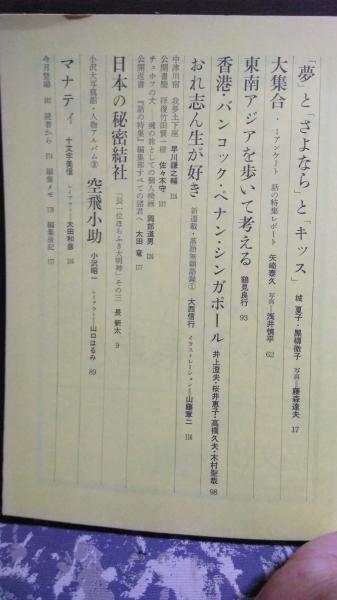 「夢」と「さよなら」と「キッス」 城 夏子・黒柳徹子 写真=藤森達夫 17
大集合・1アンケート 話の特集レポート 矢崎泰久 写真=浅井慎平 62
東南アジアを歩いて考える 鶴見良行 93
香港・バンコック・ペナン・シンガポール 井上澄夫・桜井恵子・高橋久夫・木村聖哉 98
おれ志ん生が好き 新連載・落語無頼語録① 大西信行 イラストレーション=山藤章二 116
中津川宿 我夢土下座 早川謙之輔 124
公開書簡 拝復竹田賢一様 佐々木守
チェホフの犬 魂の旅としての個人映画 岡部道男 126
公開返書 『話の特集』編集部すべての諸君へ 太田 竜 177
日本の秘密結社 「長一位ほらふき大明神」その三 長 新太 9
小沢大写真館・人物アルバム③ 空飛小助 小沢昭一 レイアウト=山口はるみ 89
マナティ 十文字美信 レイアウト=太田和彦
今月登場 読者から 174 編集メモ 175 編集後記 177